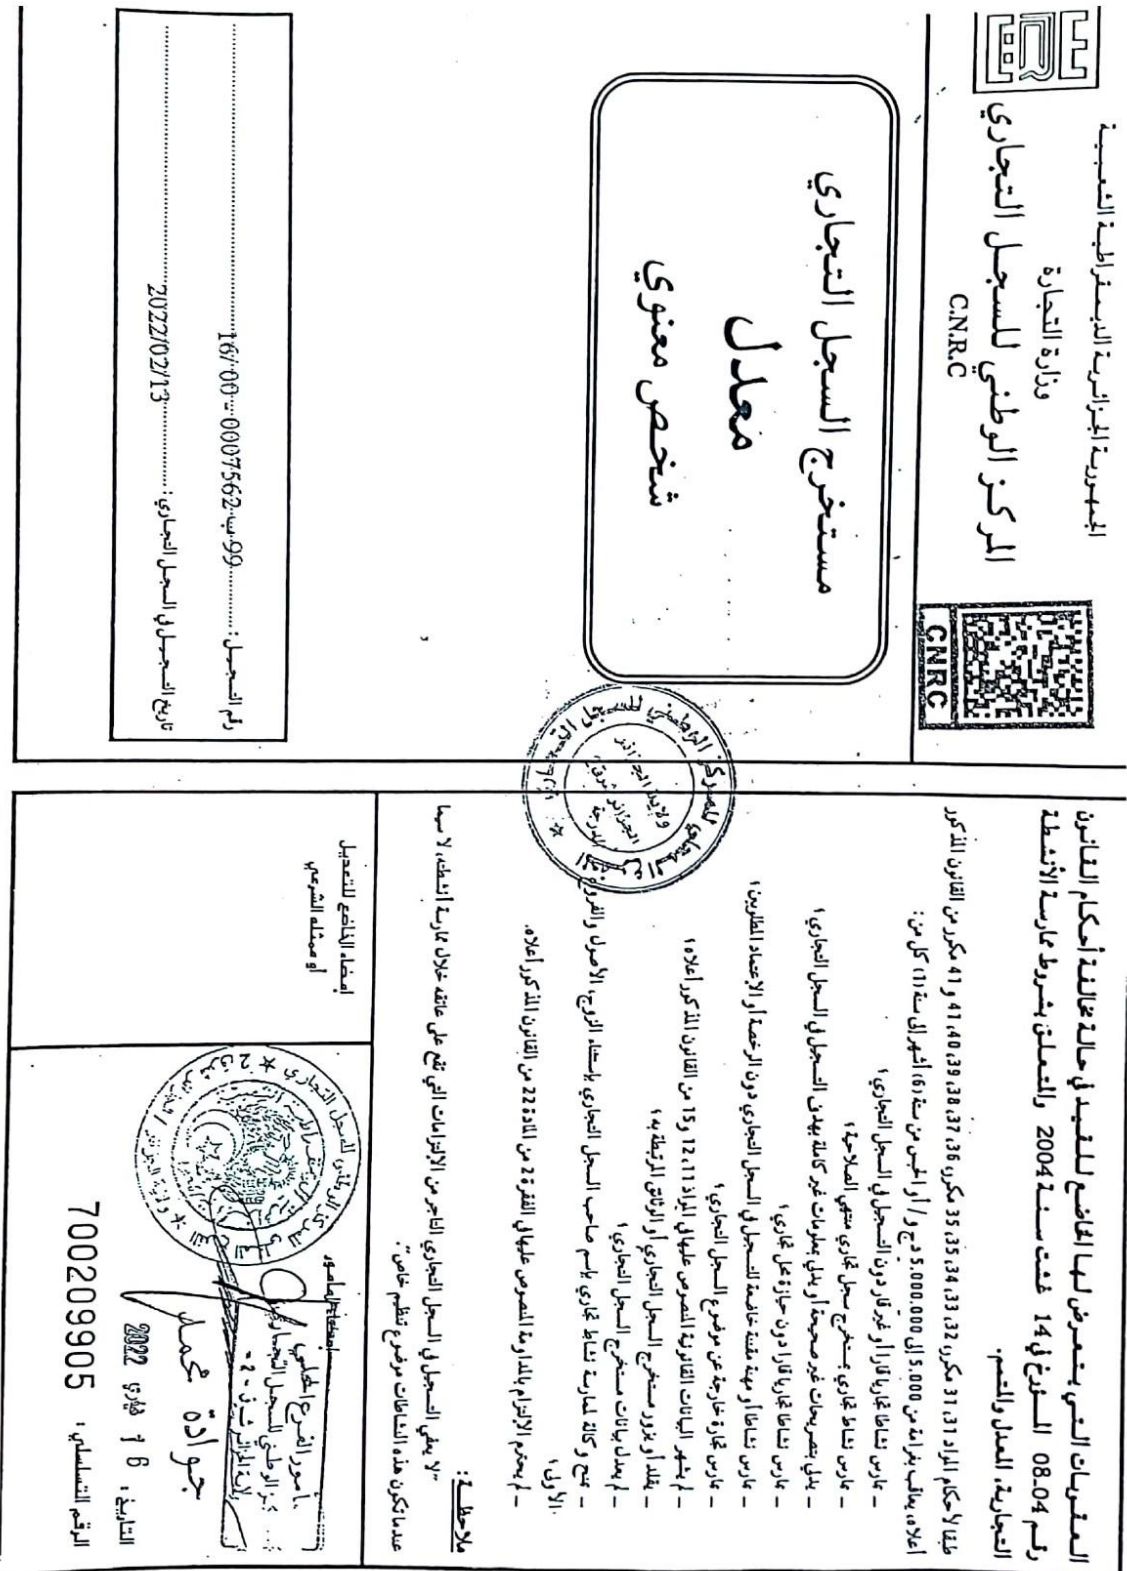 الجمهورية الجزائرية الديمقراطية الشعبية
وزارة التجارة
المركز الوطني للسجل التجاري
C.N.R.C
CNRC
مستخرج السجل التجاري
معدل
شخص معنوي
رقم التسجيل : 99 ب 0007562 - 16/00
تاريخ التسجيل في السجل التجاري : 2022/02/13
العقوبات التي يتعرض لها الخاضع للقيد في حالة مخالفة أحكام القانون
رقم 04-08 المؤرخ في 14 غشت سنة 2004 والمتعلق بشروط ممارسة الأنشطة
التجارية، المعدل والمتمم.
طبقا لأحكام المواد 31، 31 مكرر، 32، 33، 34، 35، 35 مكرر، 36، 37، 38، 39، 40، 41 و 41 مكرر من القانون المذكور
أعلاه، يعاقب بغرامة من 5.000 إلى 5.000.000 دج و / أو الحبس من ستة (6) أشهر إلى سنة (1) كل من :
– مارس نشاطا تجاريا قارا أو غير قار دون التسجيل في السجل التجاري ؛
– مارس نشاط تجاري بمستخرج سجل تجاري منتهي الصلاحية ؛
– يدلي بتصريحات غير صحيحة أو يدلي بمعلومات غير كاملة بهدف التسجيل في السجل التجاري ؛
– مارس نشاطا تجاريا قارا دون حيازة محل تجاري ؛
– مارس نشاطا أو مهنة مقننة خاضعة للتسجيل في السجل التجاري دون الرخصة أو الإعتماد المطلوبين ؛
– مارس تجارة خارجة عن موضوع السجل التجاري ؛
– لم يشهر البيانات القانونية المنصوص عليها في المواد 11، 12 و 15 من القانون المذكور أعلاه ؛
– يقلد أو يزور مستخرج السجل التجاري أو الوثائق المرتبطة به ؛
– لم يعدل بيانات مستخرج السجل التجاري ؛
– منح وكالة لممارسة نشاط تجاري باسم صاحب السجل التجاري باستثناء الزوج، الأصول والفروع من الدرجة
الأولى ؛
– لم يحترم الإلتزام بالمداومة المنصوص عليها في الفقرة 2 من المادة 22 من القانون المذكور أعلاه.
ملاحظة :
"لا يعفي التسجيل في السجل التجاري التاجر من الالتزامات التي تقع على عاتقه خلال ممارسة أنشطته، لا سيما
عندما تكون هذه النشاطات موضوع تنظيم خاص".
إمضاء الخاضع للتعديل
أو ممثله الشرعي
إمضاء المأمور
مأمور الفرع المحلي
للمركز الوطني للسجل التجاري
لولاية الجزائر شرق - 2 -
جوادة محمد
التاريخ : 16 فيفري 2022
الرقم التسلسلي : 7002099905